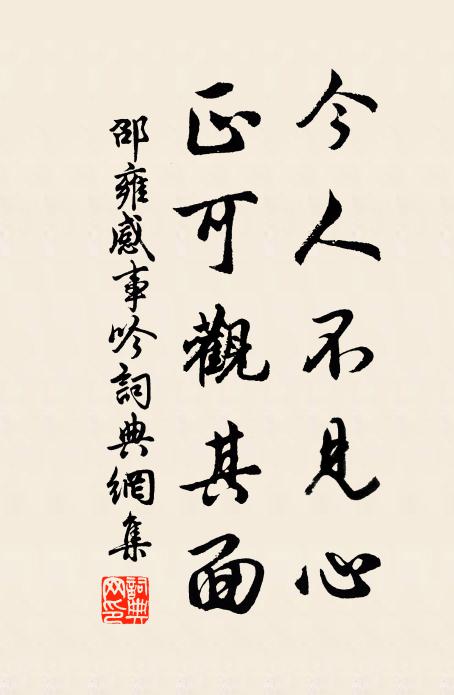 今人不見心
正可觀其面
邵雍感事吟詞典網集
詞典網印